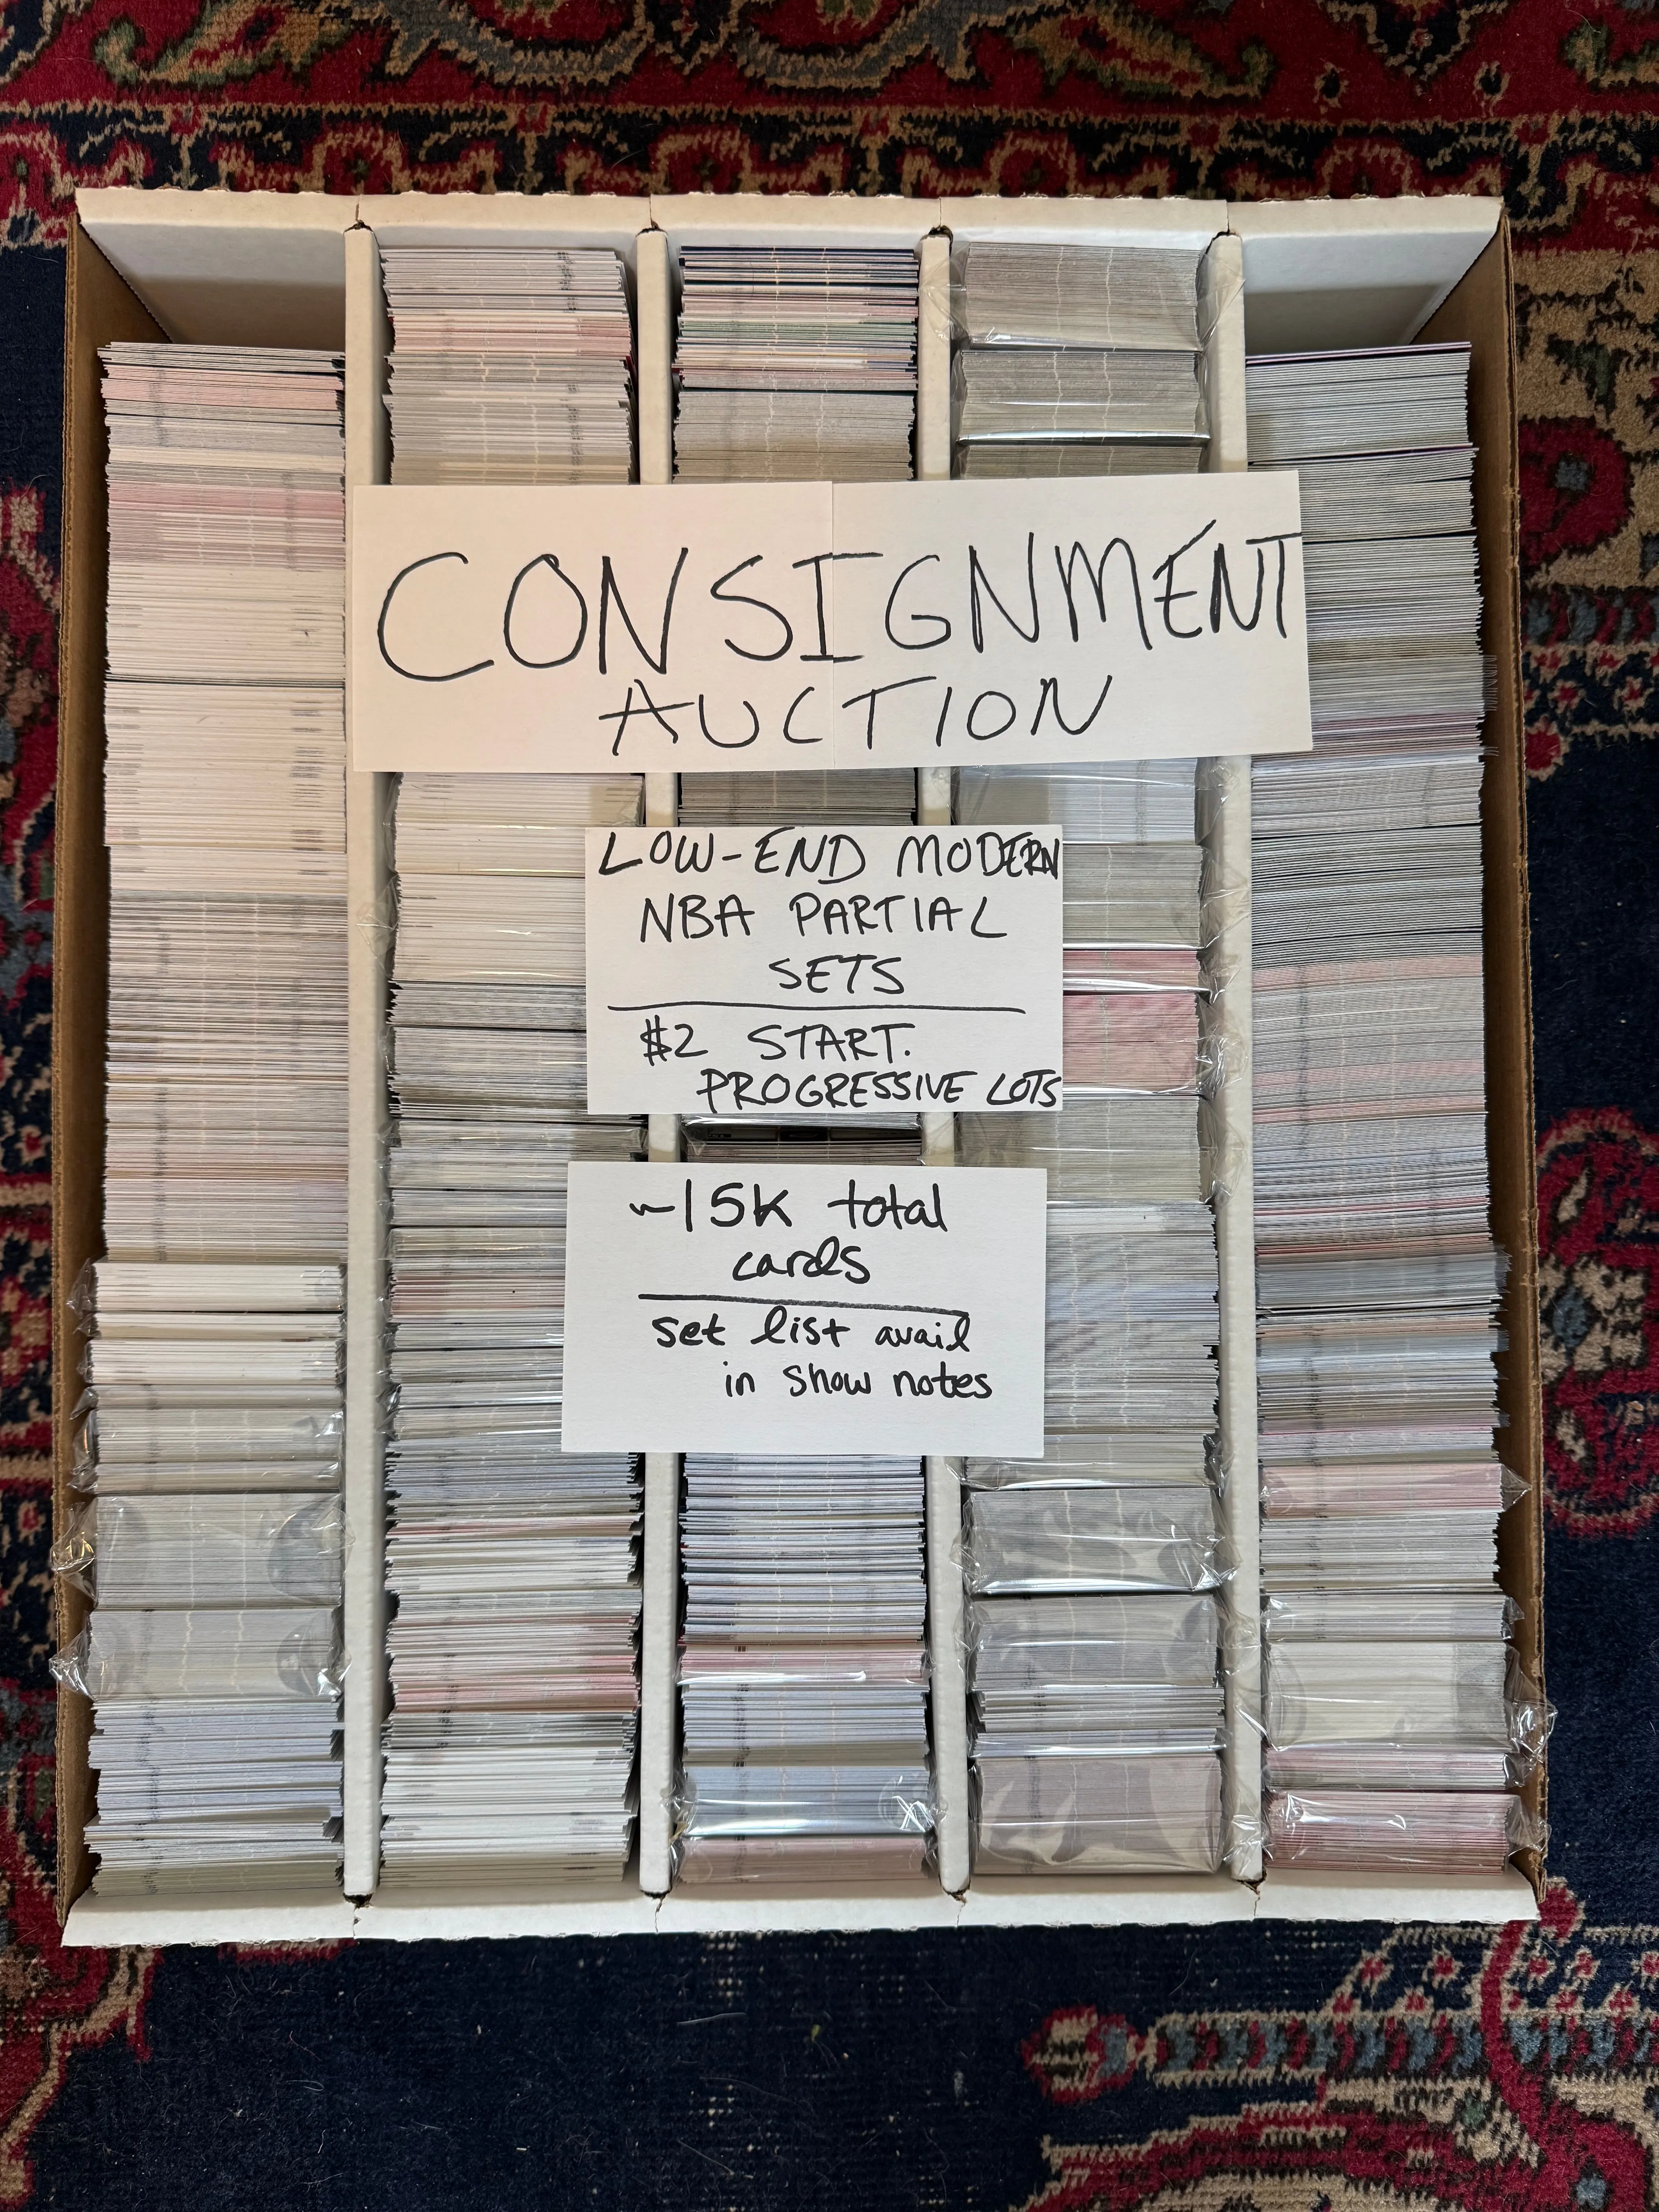 CONSIGNMENT
AUCTION
LOW-END MODERN
NBA PARTIAL
SETS
$2 START.
PROGRESSIVE LOTS
~15K total
cards
set list avail
in show notes